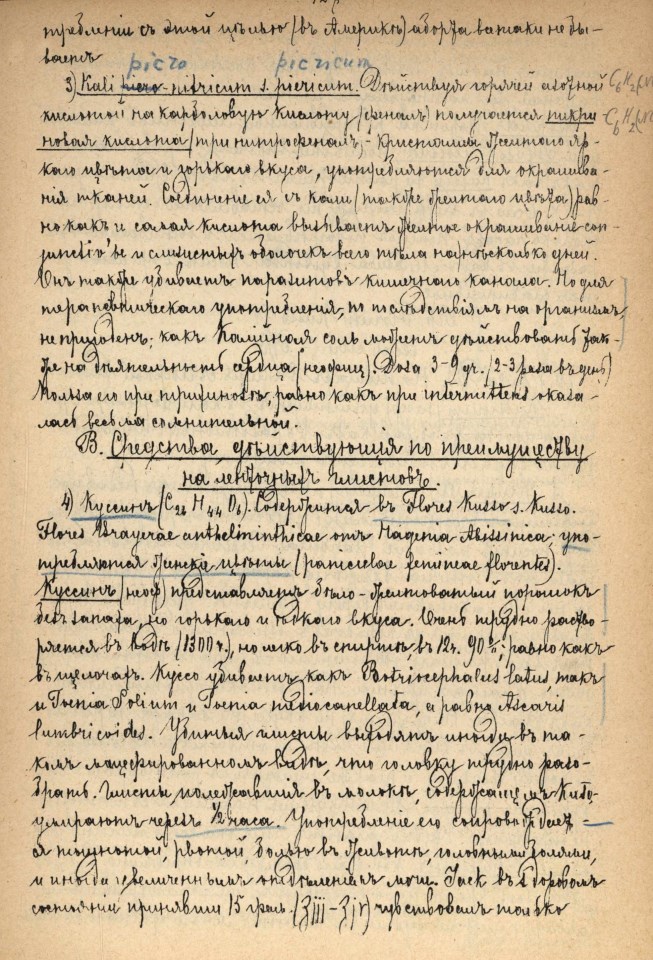 127
треблении съ этой цѣлью (въ Америкѣ) аборта все таки не бы-
ваетъ
picro picricum
3) Kali picro-nitricum s. picricum. Дѣйствуя горячей азотной
кислотой на карболовую кислоту (фенолъ) получается пикри
новая кислота (три нитрофенолъ), - кристаллы желтаго яр-
каго цвѣта и горькаго вкуса, употребляются для окрашива-
нія тканей. Соединеніе ея съ кали (также желтаго цвѣта) рав-
но какъ и самая кислота вызываетъ желтое окрашиваніе con-
junctiv'ы и слизистыхъ оболочекъ всего тѣла на нѣсколько дней.
Онъ также убиваетъ паразитовъ кишечнаго канала. Но для
терапевтическаго употребленія, по послѣдствіямъ на организмъ,
не пригоденъ; какъ калійная соль можетъ дѣйствовать так-
же на дѣятельность сердца (неофиц). Доза 3-9 gr. (2-3 раза въ день)
Польза его при трихинозѣ, равно какъ при intermittens оказа-
лась весьма сомнительной.
В. Средства, дѣйствующія по преимуществу
на ленточныхъ глистовъ.
4) Куссинъ (C26 H44 O6). Содержится въ Flores Kusso s. Kusso.
Flores Brayerae anthelminthicae отъ Hagenia Abissinica; упо-
требляются женскіе цвѣты (paniculae femineae florentes).
Куссинъ (неоф) представляетъ бѣло-желтоватый порошокъ
безъ запаха, но горькаго и ѣдкаго вкуса. Очень трудно раство-
ряется въ водѣ (1300 ч.), но легко въ спиртѣ въ 12 ч. 90%; равно какъ
въ щелочахъ. Куссо убиваетъ какъ Botriocephalus latus, такъ
и Toenia Solium и Toenia mediocanellata, а равно Ascaris
lumbricoides. Убитые глисты выходятъ иногда въ та-
комъ мацерированномъ видѣ, что головку трудно разо-
брать. Глисты, полежавшіе въ молокѣ, содержащемъ Kusso,
умираютъ черезъ 1/2 часа. Употребленіе его сопровождает-
ся тошнотой, рвотой, болью въ животѣ, головными болями,
и иногда увеличеннымъ отдѣленіемъ мочи. Jack въ здоровомъ
состояніи принявши 15 грам. (ʒiii-ʒiv) чувствовалъ только